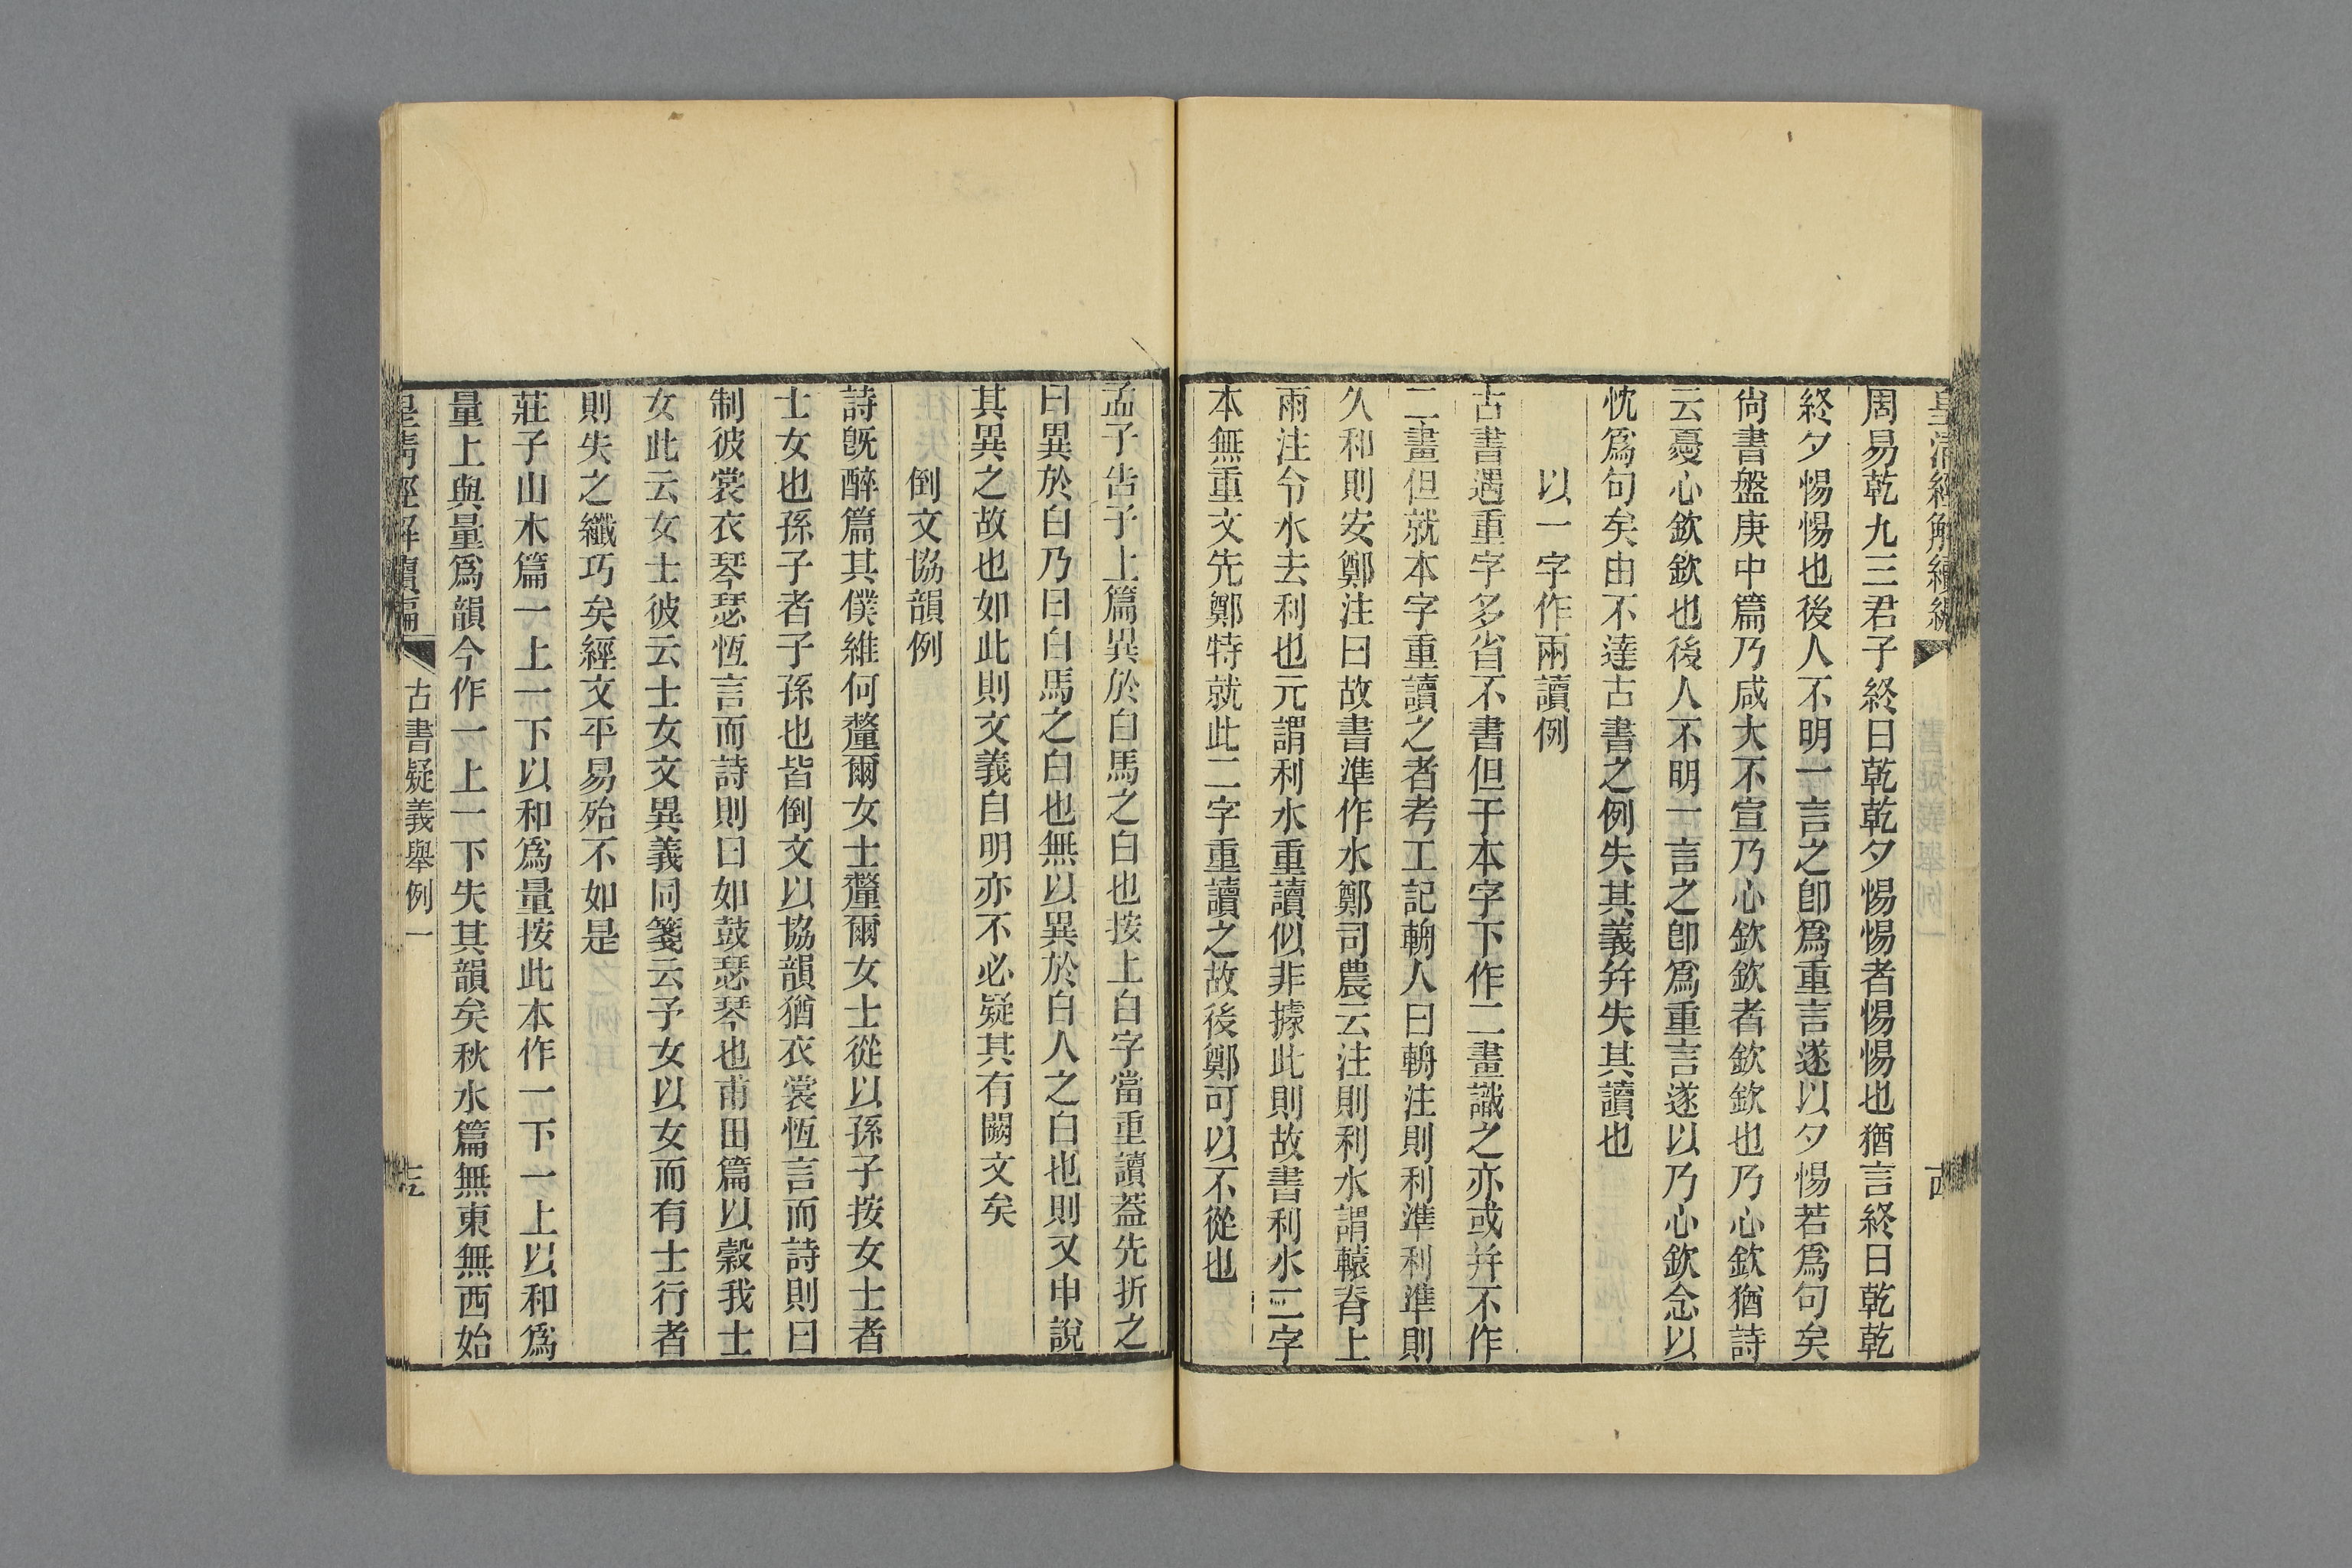 皇清經解續編
周易乾九三君子終日乾乾夕惕惕者惕惕也猶言終日乾乾
終夕惕惕也後人不明一言之卽爲重言遂以夕惕若爲句矣
尙書盤庚中篇乃咸大不宣乃心欽欽者欽欽也乃心欽猶詩
云憂心欽欽也後人不明一言之卽爲重言遂以乃心欽念以
忱爲句矣由不達古書之例失其義幷失其讀也
以一字作兩讀例
古書遇重字多省不書但于本字下作二畫識之亦或幷不作
二畫但就本字重讀之者考工記輈人曰輈注則利準利準則
久和則安鄭注曰故書準作水鄭司農云注則利水謂轅脊上
雨注令水去利也元謂利水重讀似非據此則故書利水二字
本無重文先鄭特就此二字重讀之故後鄭可以不從也
孟子告子上篇異於白馬之白也按上白字當重讀葢先折之
曰異於白乃曰白馬之白也無以異於白人之白也則又申說
其異之故也如此則文義自明亦不必疑其有闕文矣
倒文協韻例
詩旣醉篇其僕維何釐爾女士釐爾女士從以孫子按女士者
士女也孫子者子孫也皆倒文以協韻猶衣裳恆言而詩則曰
制彼裳衣琴瑟恆言而詩則曰如鼓瑟琴也甫田篇以穀我士
女此云女士彼云士女文異義同箋云予女以女而有士行者
則失之纖巧矣經文平易殆不如是
莊子山木篇一上一下以和爲量按此本作一下一上以和爲
量上與量爲韻今作一上一下失其韻矣秋水篇無東無西始
皇清經解續編 古書疑義舉例一